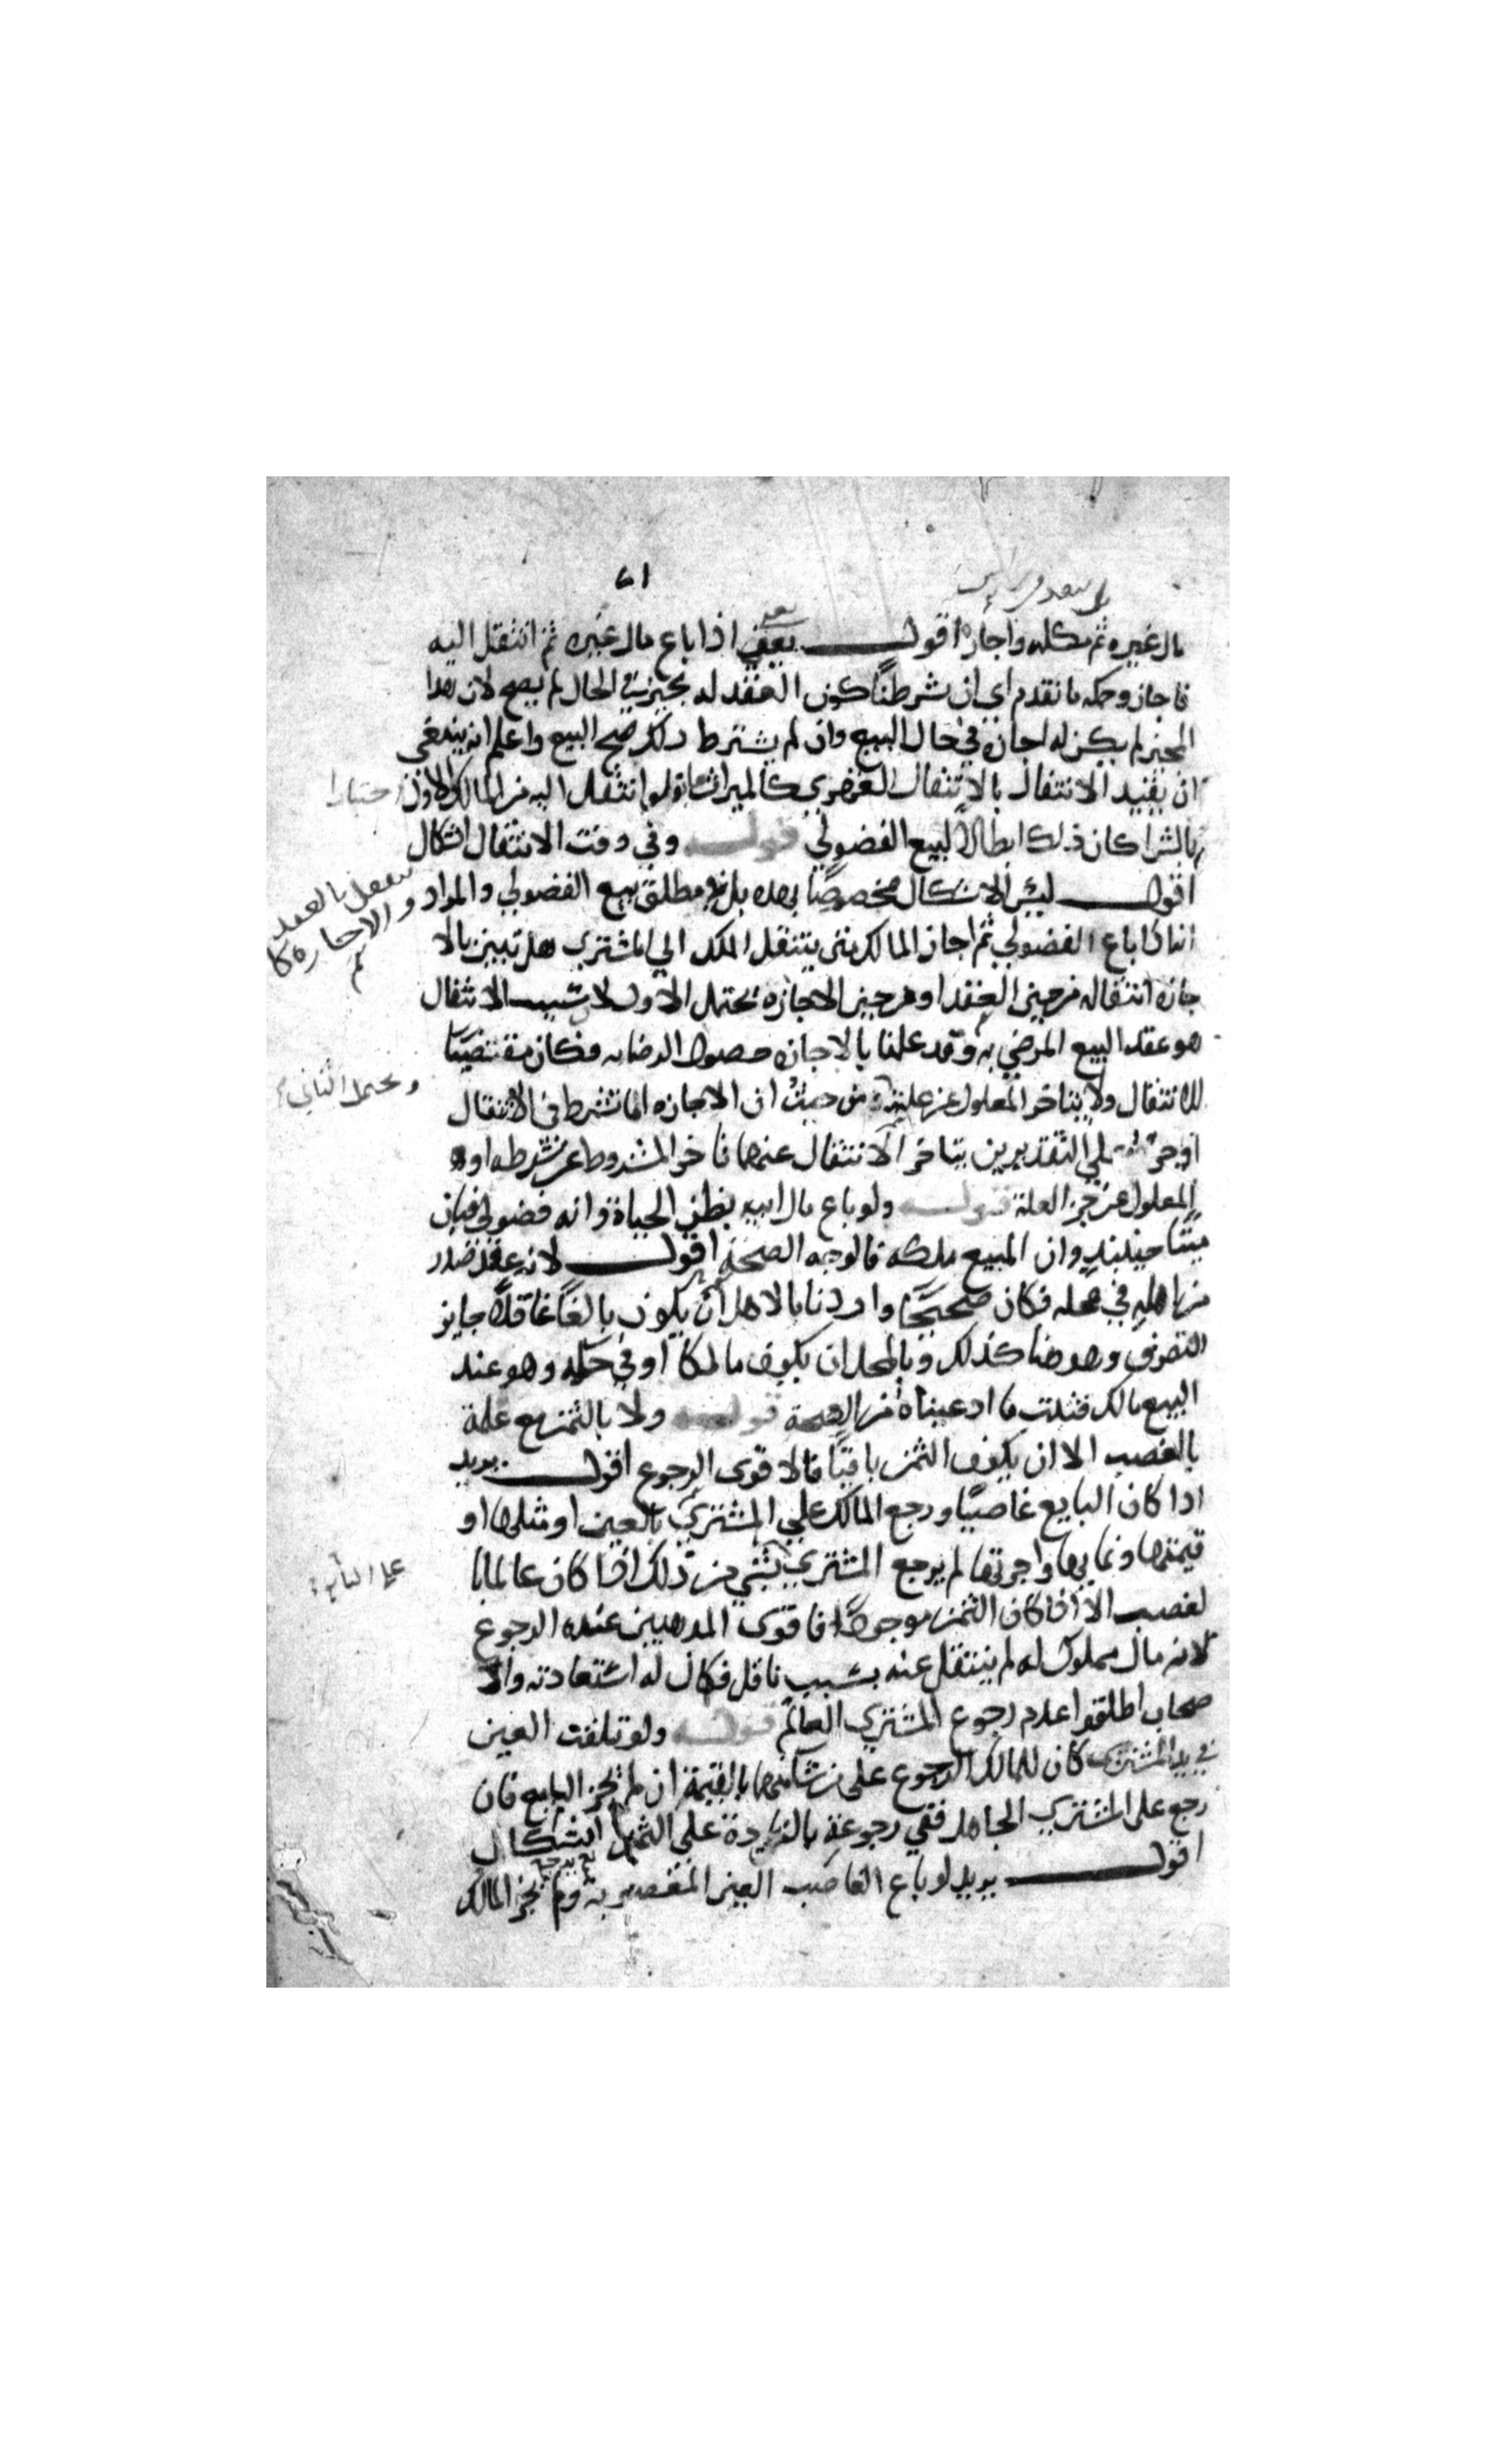 ٦١
مال غيره ثم ملكه واجازه اقول يعني اذا باع مال غيره ثم انتقل اليه
فاجاز وحكمه ما تقدم اي ان شرطنا كون العقد له مجيز في الحال لم يصح لان هذا
المجيز لم يكن له اجازة في حال البيع وان لم يشترط ذلك صح البيع واعلم انه ينبغي
ان يقيد الانتقال بالانتقال القهري كالميراث فانه لو انتقل اليه من المالك الاول اختيارا
بالشرا كان ذلك ابطالا لبيع الفضولي قوله وفي وقت الانتقال اشكال
اقول ليس الاشكال مخصوصا بهذه بل هو مطلق بيع الفضولي والمراد
انه اذا باع الفضولي ثم اجاز المالك متى ينتقل الملك الي المشتري هل تبين بالا
جازه انتقاله من حين العقد او من حين الاجازه يحتمل الاول لان سبب الانتقال
هو عقد البيع المرضي به وقد علمنا بالاجازه حصول الرضا به فكان مقتضيا
للانتقال ولا يتاخر المعلول عن علته من حيث ان الاجازه اما شرط في الانتقال
ويحتمل الثاني
او جزء علي التقديرين يتاخر الانتقال عنهما تاخر المشروط عن شرطه او
المعلول عن جزء العلة قوله ولو باع مال ابيه بظن الحياة وانه فضولي فبان
ميتا حينئذ وان المبيع ملكه فالوجه الصحة اقول لانه عقد صدر
من اهله في محله فكان صحيحا واردنا بالاهل ان يكون بالغا عاقلا جايز
التصرف وهو هنا كذلك وبالمحل ان يكون مالكا او في حكمه وهو عند
البيع مالك فثبت ما ادعيناه من الصحة قوله ولا بالثمن مع علمه
بالغصب الا ان يكون الثمن باقيا فالاقوى الرجوع اقول يريد
اذا كان البايع غاصبا ورجع المالك علي المشتري بالعين او مثلها او
قيمتها ونمايها واجرتها لم يرجع المشتري بشي من ذلك اذا كان عالما با
علي البايع
لغصب الا اذا كان الثمن موجودا فاقوى المذهبين عنده الرجوع
لانه مال مملوك له لم ينتقل عنه بسبب ناقل فكان له استعادته والا
صحاب اطلقوا عدم رجوع المشتري العالم قوله ولو تلفت العين
في يد المشتري كان للمالك الرجوع على من شا منهما بالقيمة ان لم يجز البيع فان
رجع على المشتري الجاهل ففي رجوعه بالزيادة علي الثمن اشكال
اقول يريد لو باع الغاصب العين المغصوبة ولم يجز المالك